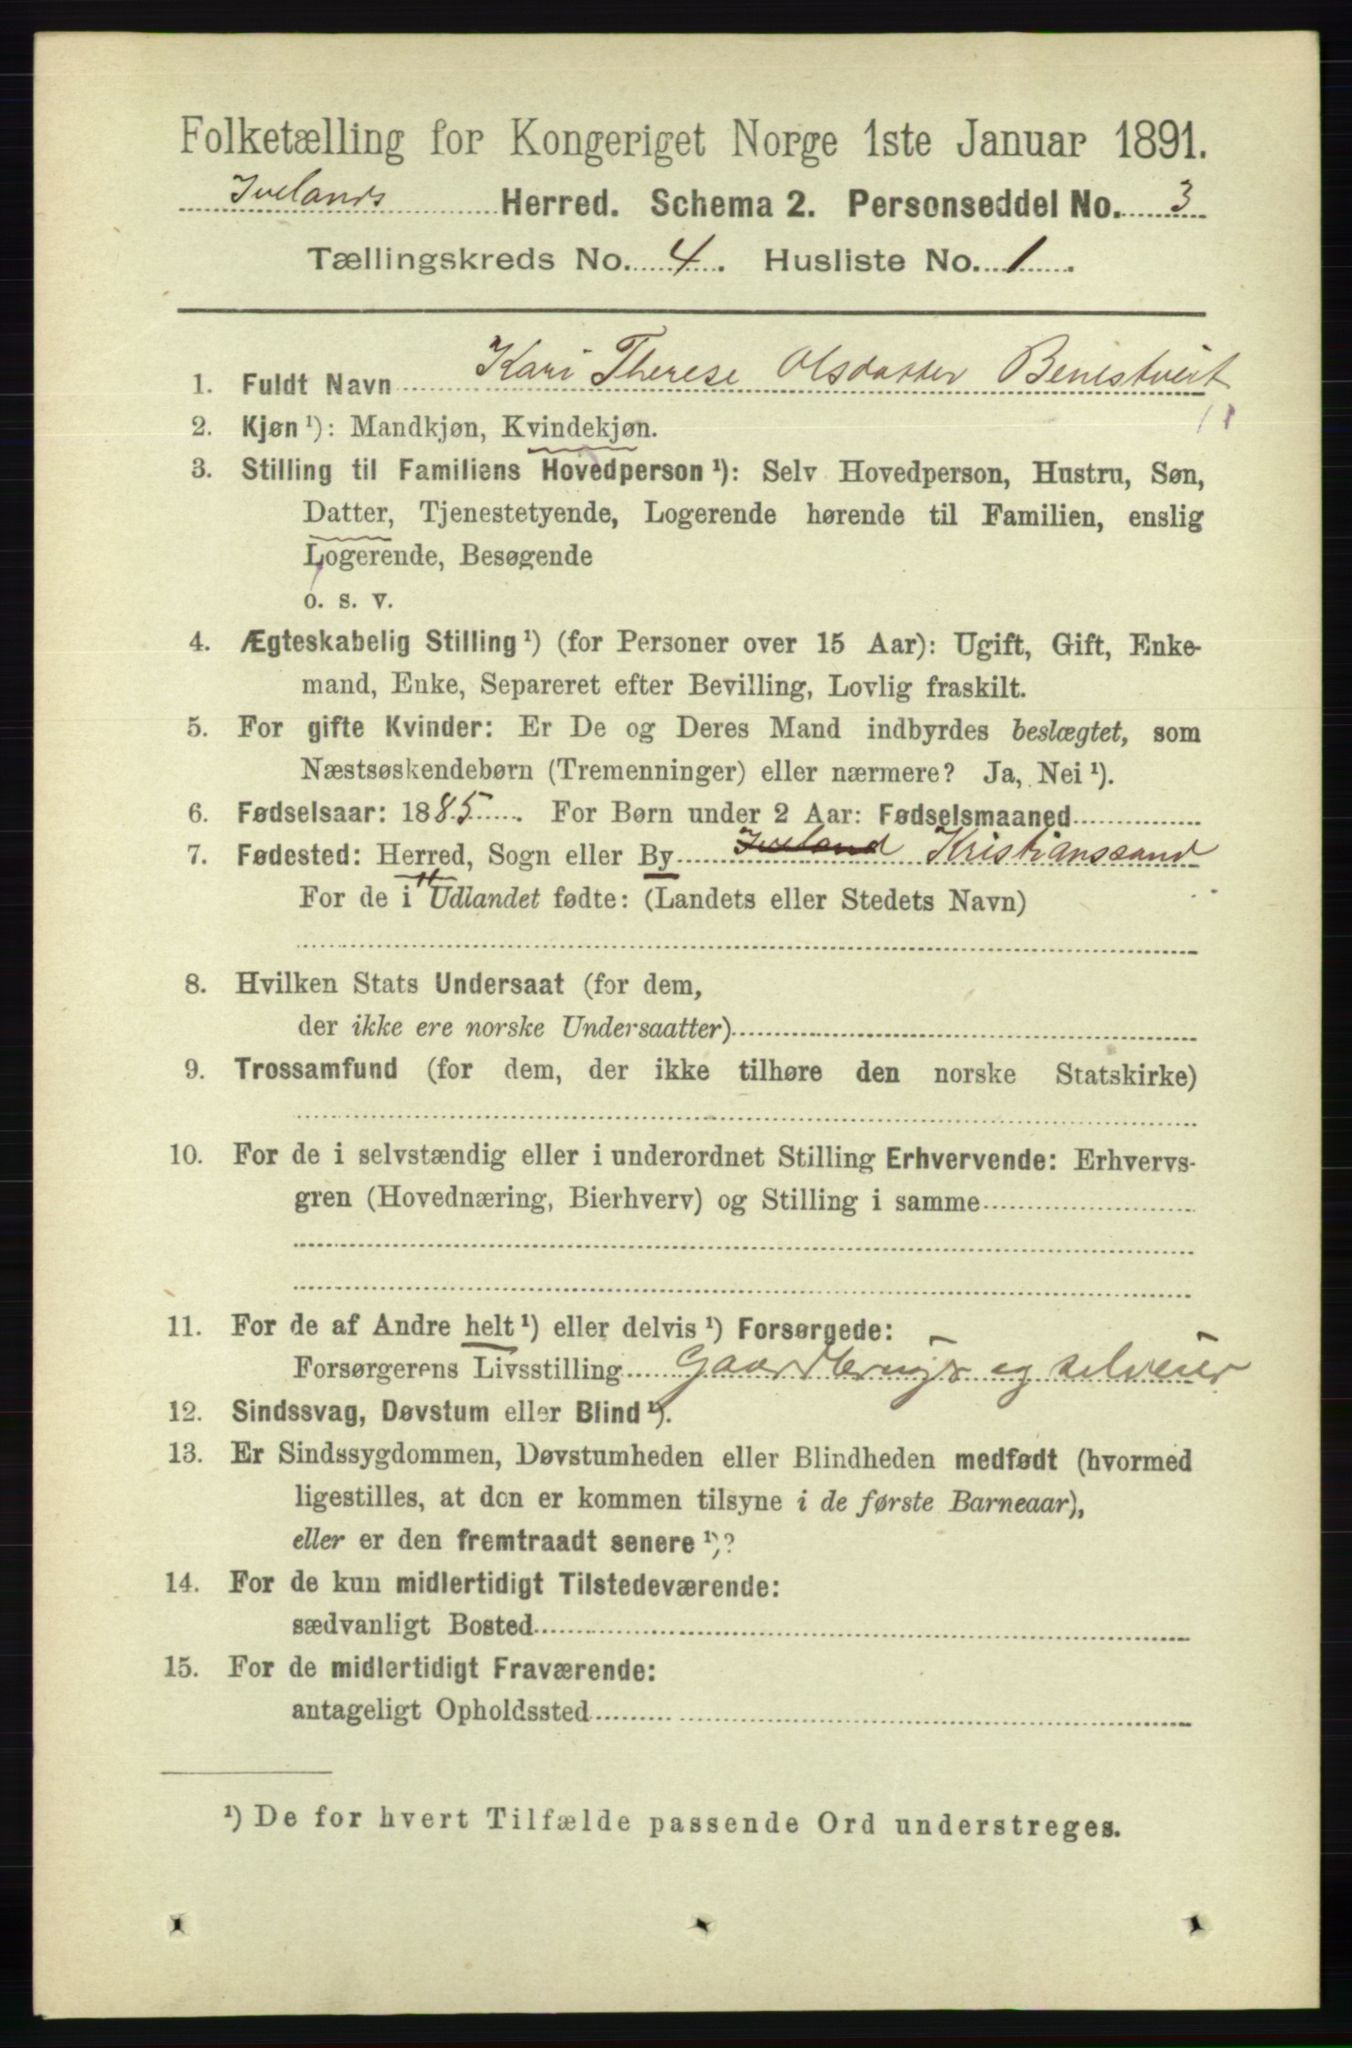 Folketælling for Kongeriget Norge 1ste Januar 1891.
Ivelands Herred. Schema 2. Personseddel No. 3
Tællingskreds No. 4. Husliste No. 1.
1. Fuldt Navn Kari Therese Olsdatter Benestveit
2. Kjøn ¹): Mandkjøn, Kvindekjøn.
3. Stilling til Familiens Hovedperson ¹): Selv Hovedperson, Hustru, Søn,
Datter, Tjenestetyende, Logerende hørende til Familien, enslig
Logerende, Besøgende
o. s. v.
4. Ægteskabelig Stilling ¹) (for Personer over 15 Aar): Ugift, Gift, Enke-
mand, Enke, Separeret efter Bevilling, Lovlig fraskilt.
5. For gifte Kvinder: Er De og Deres Mand indbyrdes beslægtet, som
Næstsøskendebørn (Tremenninger) eller nærmere? Ja, Nei ¹).
6. Fødselsaar: 1885. For Børn under 2 Aar: Fødselsmaaned
7. Fødested: Herred, Sogn eller By Iveland Kristianssand
For de i Udlandet fødte: (Landets eller Stedets Navn)
8. Hvilken Stats Undersaat (for dem,
der ikke ere norske Undersaatter)
9. Trossamfund (for dem, der ikke tilhøre den norske Statskirke)
10. For de i selvstændig eller i underordnet Stilling Erhvervende: Erhvervs-
gren (Hovednæring, Bierhverv) og Stilling i samme
11. For de af Andre helt ¹) eller delvis ¹) Forsørgede:
Forsørgerens Livsstilling Gaardbruger og selveier
12. Sindssvag, Døvstum eller Blind ¹).
13. Er Sindssygdommen, Døvstumheden eller Blindheden medfødt (hvormed
ligestilles, at den er kommen tilsyne i de første Barneaar),
eller er den fremtraadt senere ¹)?
14. For de kun midlertidigt Tilstedeværende:
sædvanligt Bosted
15. For de midlertidigt Fraværende:
antageligt Opholdssted
¹) De for hvert Tilfælde passende Ord understreges.